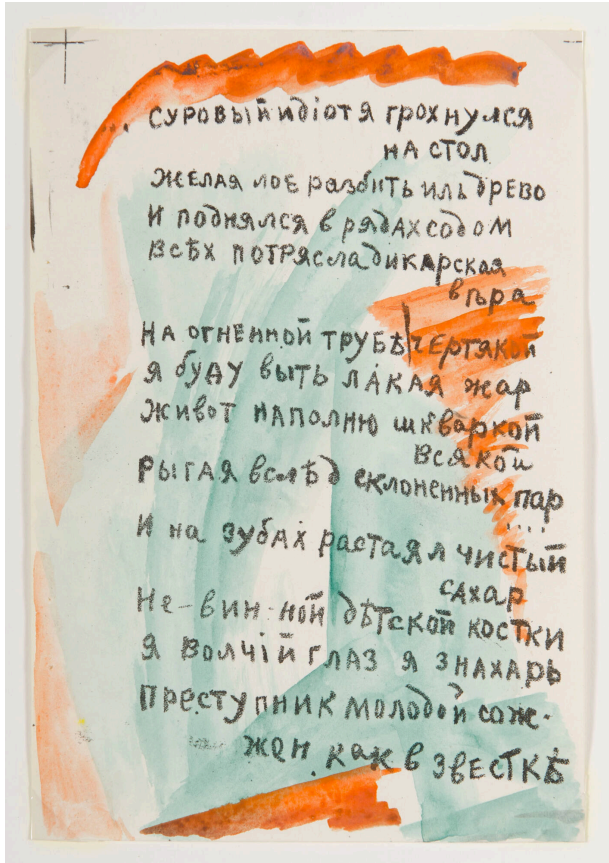 ... СУРОВЫЙ идіот я грохнулся
НА СТОЛ
ЖЕЛАЯ ЛОБ разбить ИЛЬ ДРЕВО
И поднялся в рядах содом
ВСѢХ ПОТРЯСЛА ДИКАРСКАЯ
вѣра
НА ОГНЕННОЙ ТРУБѢ ЧЕРТЯКОЙ
Я БУДУ ВЫТЬ ЛАКАЯ жар
ЖИВОТ НАПОЛНЮ шкваркой
всякой
РЫГАЯ вслѣд склоненных пар
....
И на зубах растаял чистый
САХАР
Не-вин-ной дѣтской КОСТКИ
Я ВОЛЧІЙ ГЛАЗ Я ЗНАХАРЬ
ПРЕСТУПНИК МОЛОДОЙ СОЖ-
ЖЕН. КАК В ЗВЕСТКѢ